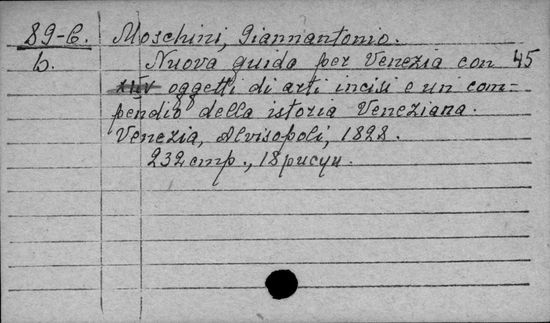 89-C. Moschini, Giannantonio.
b. Nuova guida per Venezia con 45
XLIV oggetti di arti incisi e un com-
pendio della istoria Veneziana.
Venezia, Alvisopoli, 1828.
232 стр., 18 рисун.